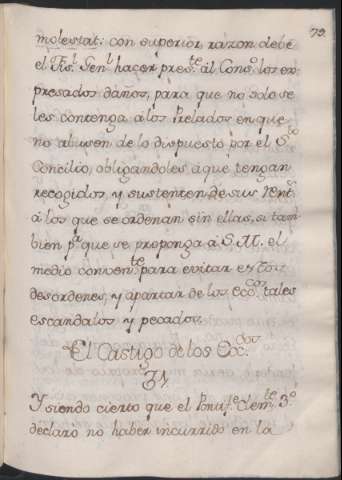 79
molestat: con superior razon debe
el Fis.l Gen.l hacer pres.te al Cons.o los ex-
presados daños, para que no solo se
les contenga á los Prelados en que
no abusen de lo dispuesto por el S.to
Concilio, obligandoles á que tengan
recogidos, y sustenten de sus Rent.s
á los que se ordenan sin ellas, si tam-
bien p.r que se proponga á S. M. el
medio conven.te para evitar estos
desordenes, y apartar de los Ecc.cos tales
escandalos y pecados.
El Castigo de los Ecc.cos
31
Y siendo cierto que el Pontif.e Clem.te 3.o
declaro no haber incurrido en la